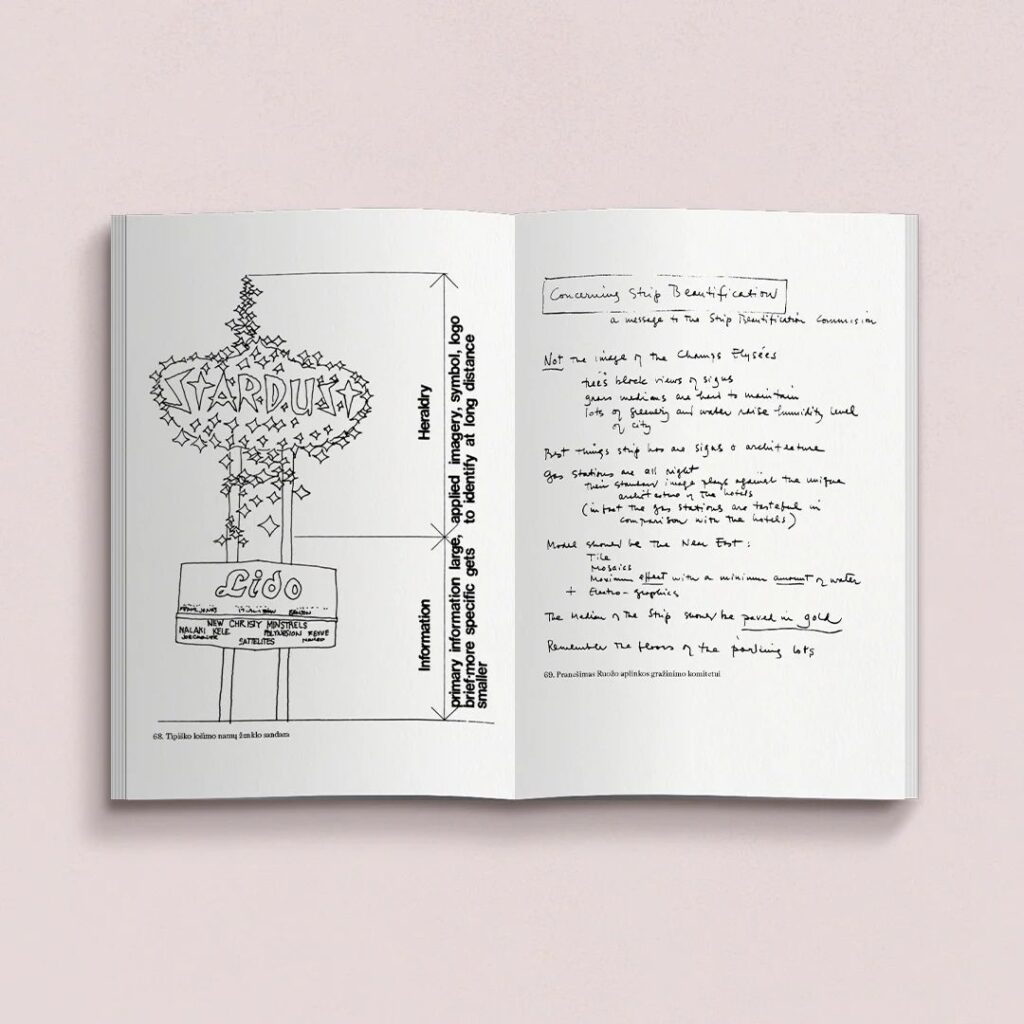 STARDUST
Lido
NEW CHRISTY MINSTRELS
NALANI KELE POLYNESION REVUE
SATTELITES
Heraldry
applied imagery, symbol, logo
to identify at long distance
Information
primary information large,
brief-more specific gets
smaller
68. Tipiško lošimo namų ženklo sandara
Concerning Strip Beautification
a message to the Strip Beautification Commision
Not the image of the Champs Elysées
trees block views of signs
grass medians are hard to maintain
lots of greenery and water raise humidity level
of city
Best things strip has are signs & architecture
Gas stations are all right
their standard image plays against the unique
architecture of the hotels
(in fact the gas stations are tasteful in
comparison with the hotels)
Model should be the Near East:
Tile
Mosaics
Maximum effect with a minimum amount of water
+ Electro-graphics
The Median of the Strip should be paved in gold
Remember the floors of the parking lots
69. Pranešimas Ruožo aplinkos gražinimo komitetui